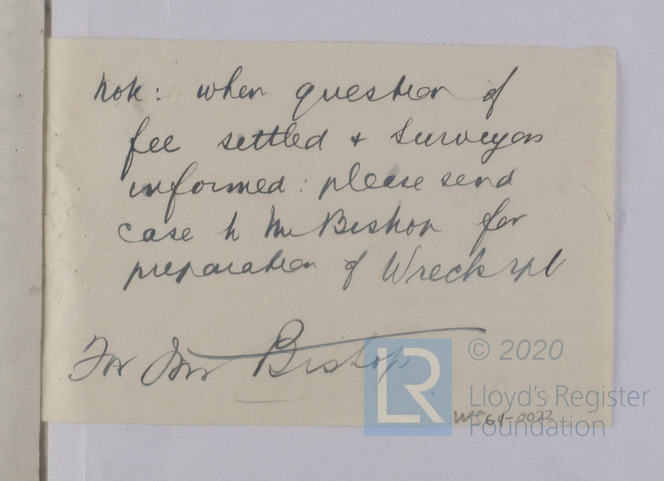 Note: when question of
fee settled & Surveyors
informed: please send
case to Mr Bishop for
preparation of Wreck rpt
For Bishop
LR © 2020
Lloyd's Register
Foundation